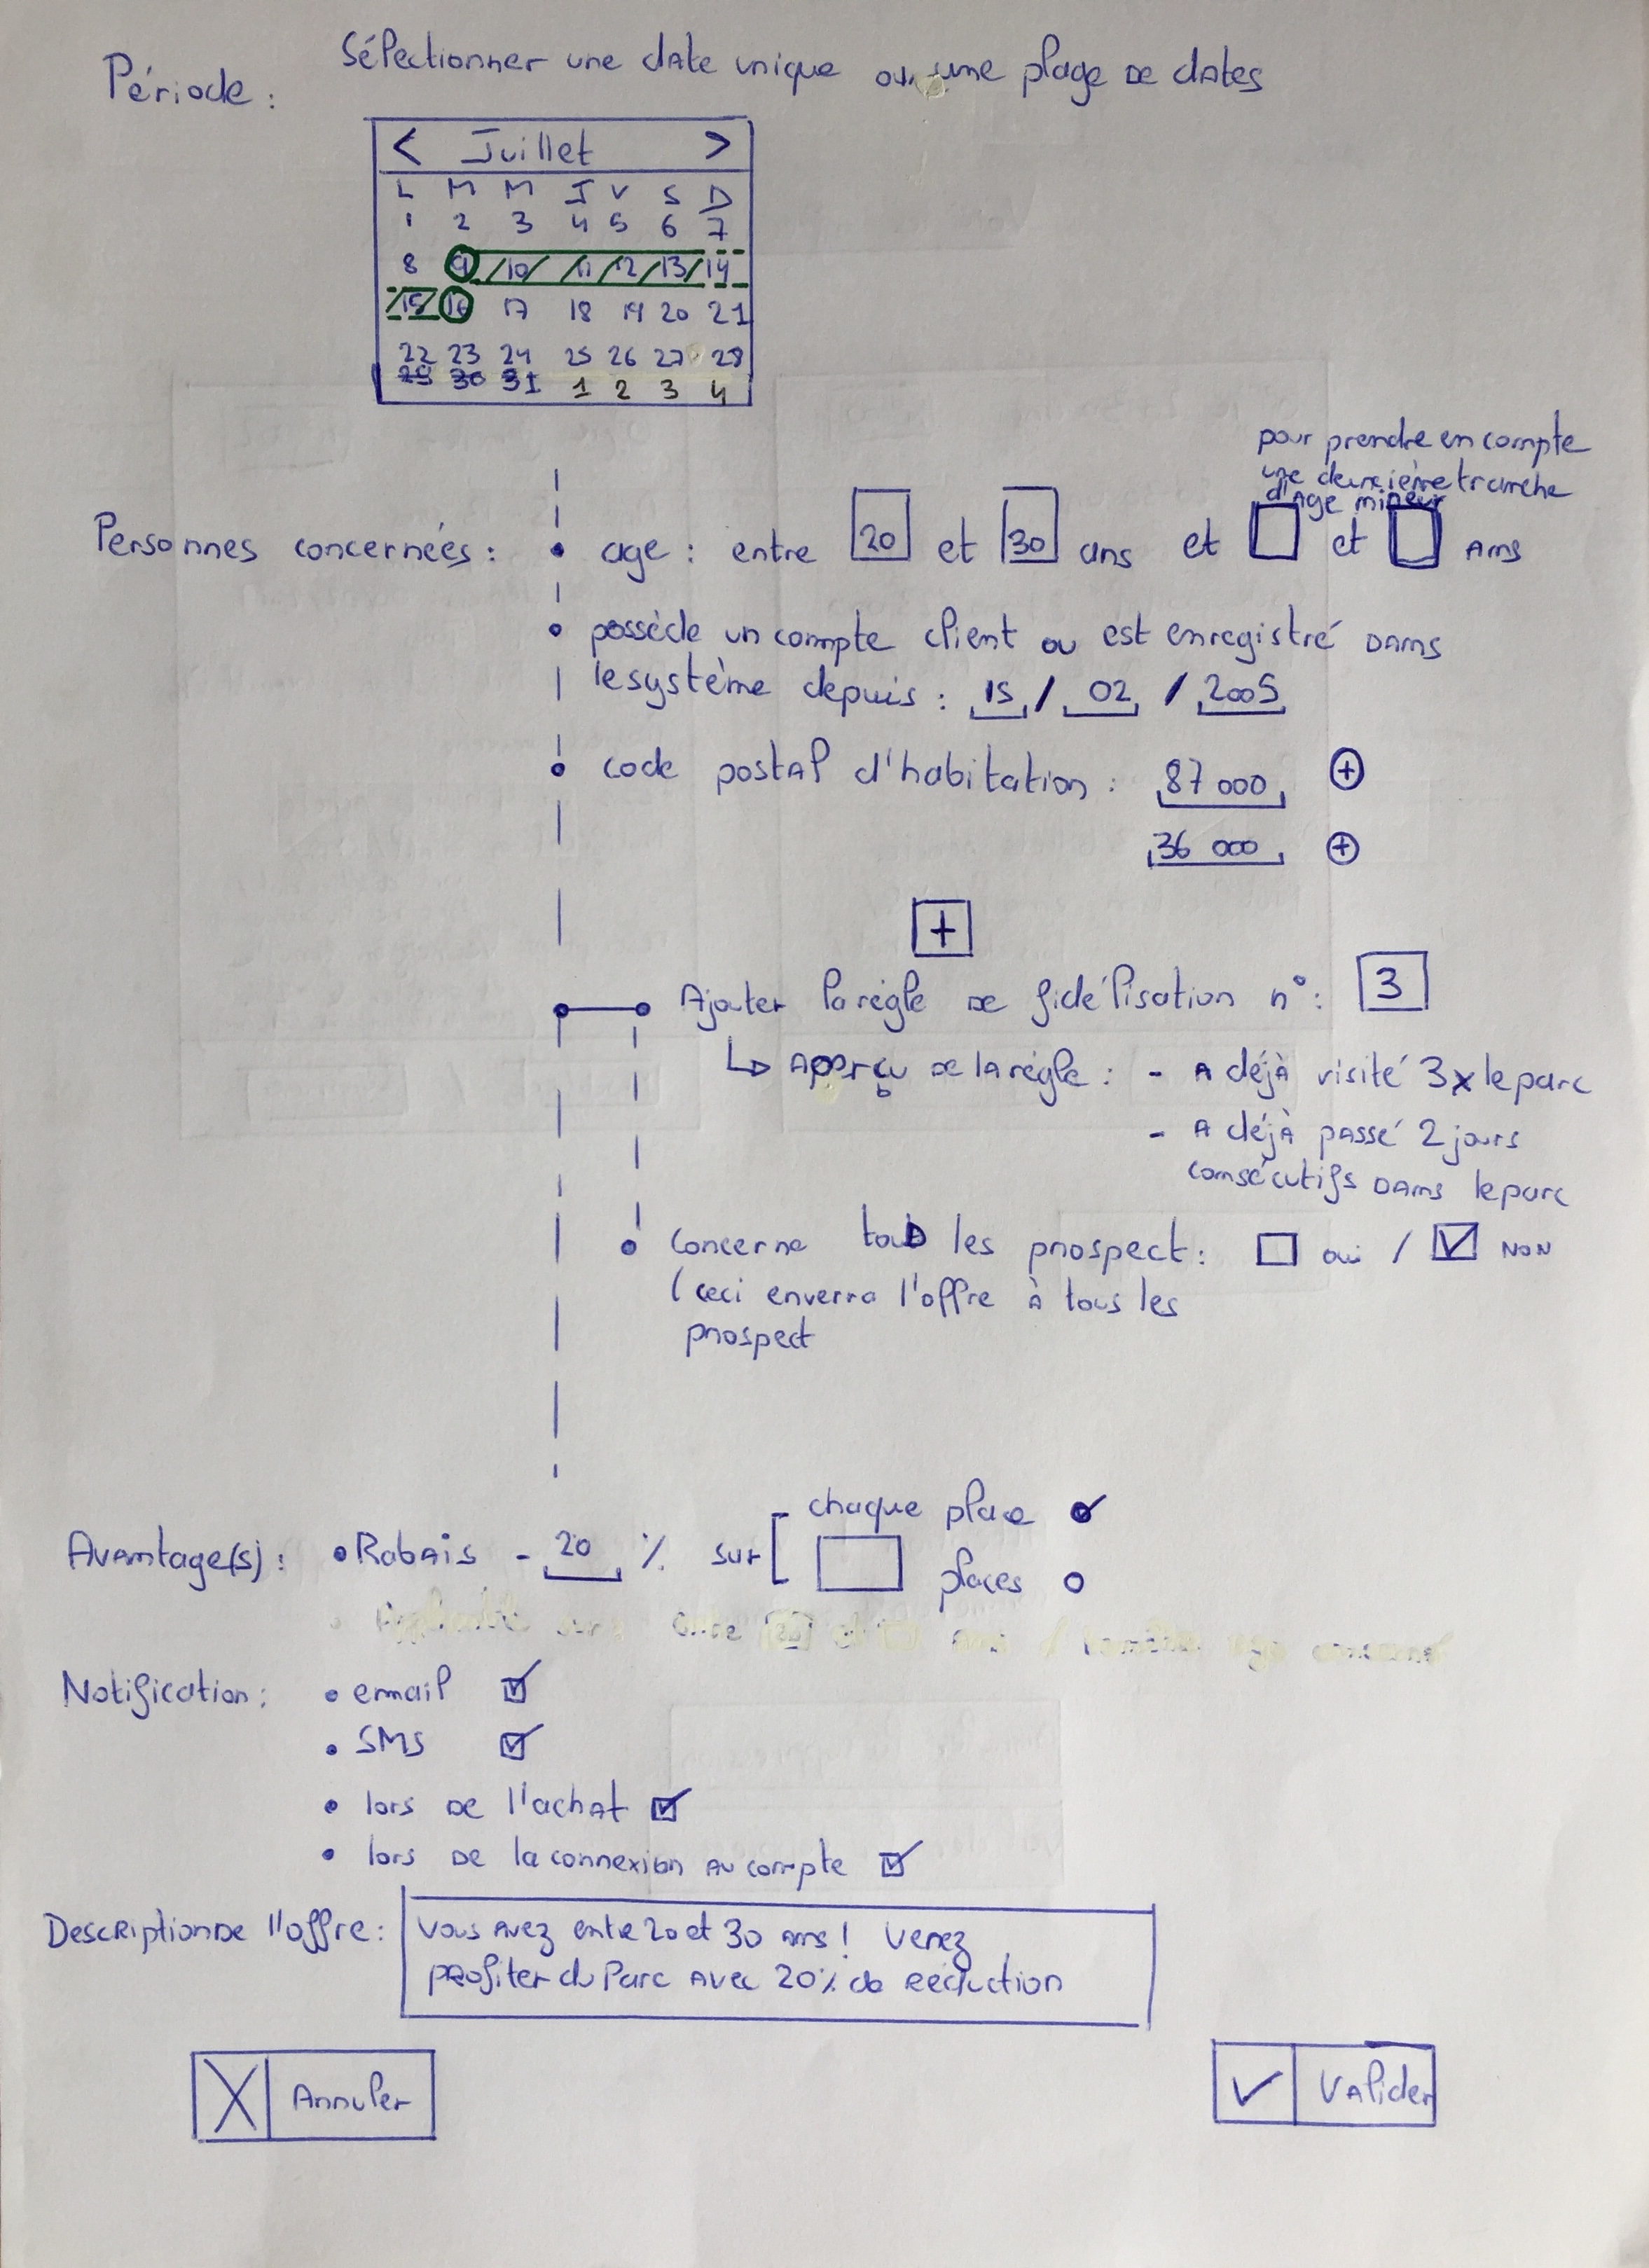 Sélectionner une date unique ou une plage DE dates
Période :
< Juillet >
L M M J V S D
1 2 3 4 5 6 7
8 9 10 11 12 13 14
15 16 17 18 19 20 21
22 23 24 25 26 27 28
29 30 31 1 2 3 4
pour prendre en compte
une deuxième tranche
d'age mineur
Personnes concernées : • age : entre 20 et 30 ans et et Ans
• possède un compte client ou est enregistré DAns
le système depuis : 15 / 02 / 2005
• code postAl d'habitation : 87 000 +
36 000 +
+
Ajouter la règle DE fidélisation n° : 3
↳ Aperçu DE lA règle : - A déjà visité 3x le parc
- A déjà pAssé 2 jours
consécutifs DAns le parc
• Concerne tous les prospect : oui / ☑ NON
(ceci enverra l'offre à tous les
prospect
Avantage(s) : • RabAis - 20 % sur [ chaque place ✓
places
Notification : • email ☑
• SMS ☑
• lors DE l'achAt ☑
• lors DE la connexion Au compte ☑
Description DE l'offre : Vous Avez entre 20 et 30 Ans ! Venez
profiter du Parc Avec 20% de Réduction
X Annuler
✓ VAlider